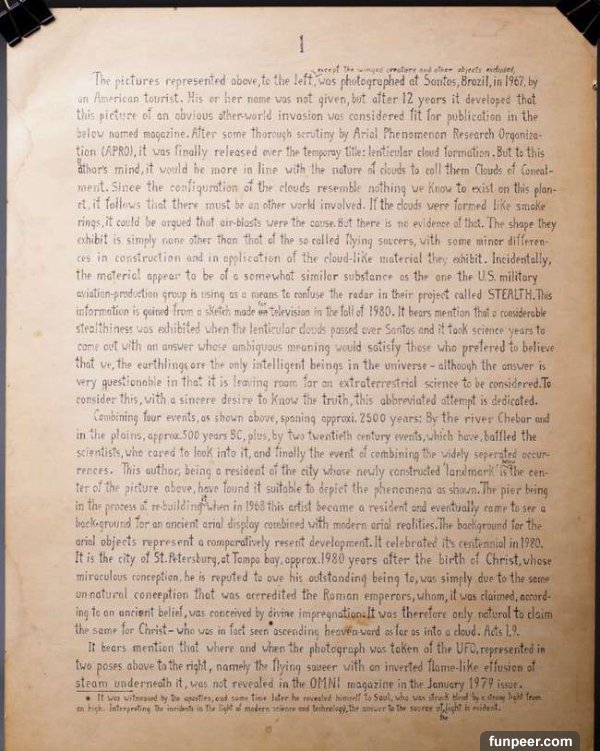 1
except the winged creature and other objects excluded,
The pictures represented above, to the left, was photographed at Santos, Brazil, in 1967, by
an American tourist. His or her name was not given, but after 12 years it developed that
this picture of an obvious other-world invasion was considered fit for publication in the
below named magazine. After some thorough scrutiny by Arial Phenomenon Research Organiza-
tion (APRO), it was finally released over the temporay title: lenticular cloud formation. But to this
athor's mind, it would be more in line with the nature of clouds to call them Clouds of Conceal-
ment. Since the configuration of the clouds resemble nothing we know to exist on this plan-
et, it follows that there must be an other world involved. If the clouds were formed like smoke
rings, it could be argued that air-blasts were the cause. But there is no evidence of that. The shape they
exhibit is simply none other than that of the so called flying saucers, with some minor differen-
ces in construction and in application of the cloud-like material they exhibit. Incidentally,
the material appear to be of a somewhat similar substance as the one the U.S. military
aviation-production group is using as a means to confuse the radar in their project called STEALTH. This
information is gained from a sketch made for television in the fall of 1980. It bears mention that a considerable
stealthiness was exhibited when the lenticular clouds passed over Santos and it took science years to
come out with an answer whose ambiguous meaning would satisfy those who prefered to believe
that we, the earthlings, are the only intelligent beings in the universe - although the answer is
very questionable in that it is leaving room for an extraterrestrial science to be considered. To
consider this, with a sincere desire to know the truth, this abbreviated attempt is dedicated.
Combining four events, as shown above, spaning approxi. 2500 years: By the river Chebar and
in the plains, approx. 500 years BC, plus, by two twentieth century events, which have, baffled the
scientists, who cared to look into it, and finally the event of combining the widely seperated occur-
rences. This author, being a resident of the city whose newly constructed 'landmark' is below the cen-
ter of the picture above, have found it suitable to depict the phenomena as shown. The pier being
in the process of re-building it when in 1968 this artist became a resident and eventually came to see a
background for an ancient arial display combined with modern arial realities. The background for the
arial objects represent a comparatively resent development. It celebrated it's centennial in 1980.
It is the city of St. Petersburg, at Tampa bay, approx. 1980 years after the birth of Christ, whose
miraculous conception, he is reputed to owe his outstanding being to, was simply due to the same
un-natural conception that was accredited the Roman emperors, whom, it was claimed, accord-
ing to an ancient belief, was conceived by divine impregnation. It was therefore only natural to claim
the same for Christ - who was in fact seen * ascending heaven-word as far as into a cloud. Acts 1,9.
It bears mention that where and when the photograph was taken of the UFO, represented in
two poses above to the right, namely the flying saucer with an inverted flame-like effusion of
steam underneath it, was not revealed in the OMNI magazine in the January 1979 issue.
* It was witnessed by the apostles, and some time later he revealed himself to Saul, who was struck blind by a strong light from
on high. Interpreting the incidents in the light of modern science and technology, the answer to the source of the light is evident.
funpeer.com